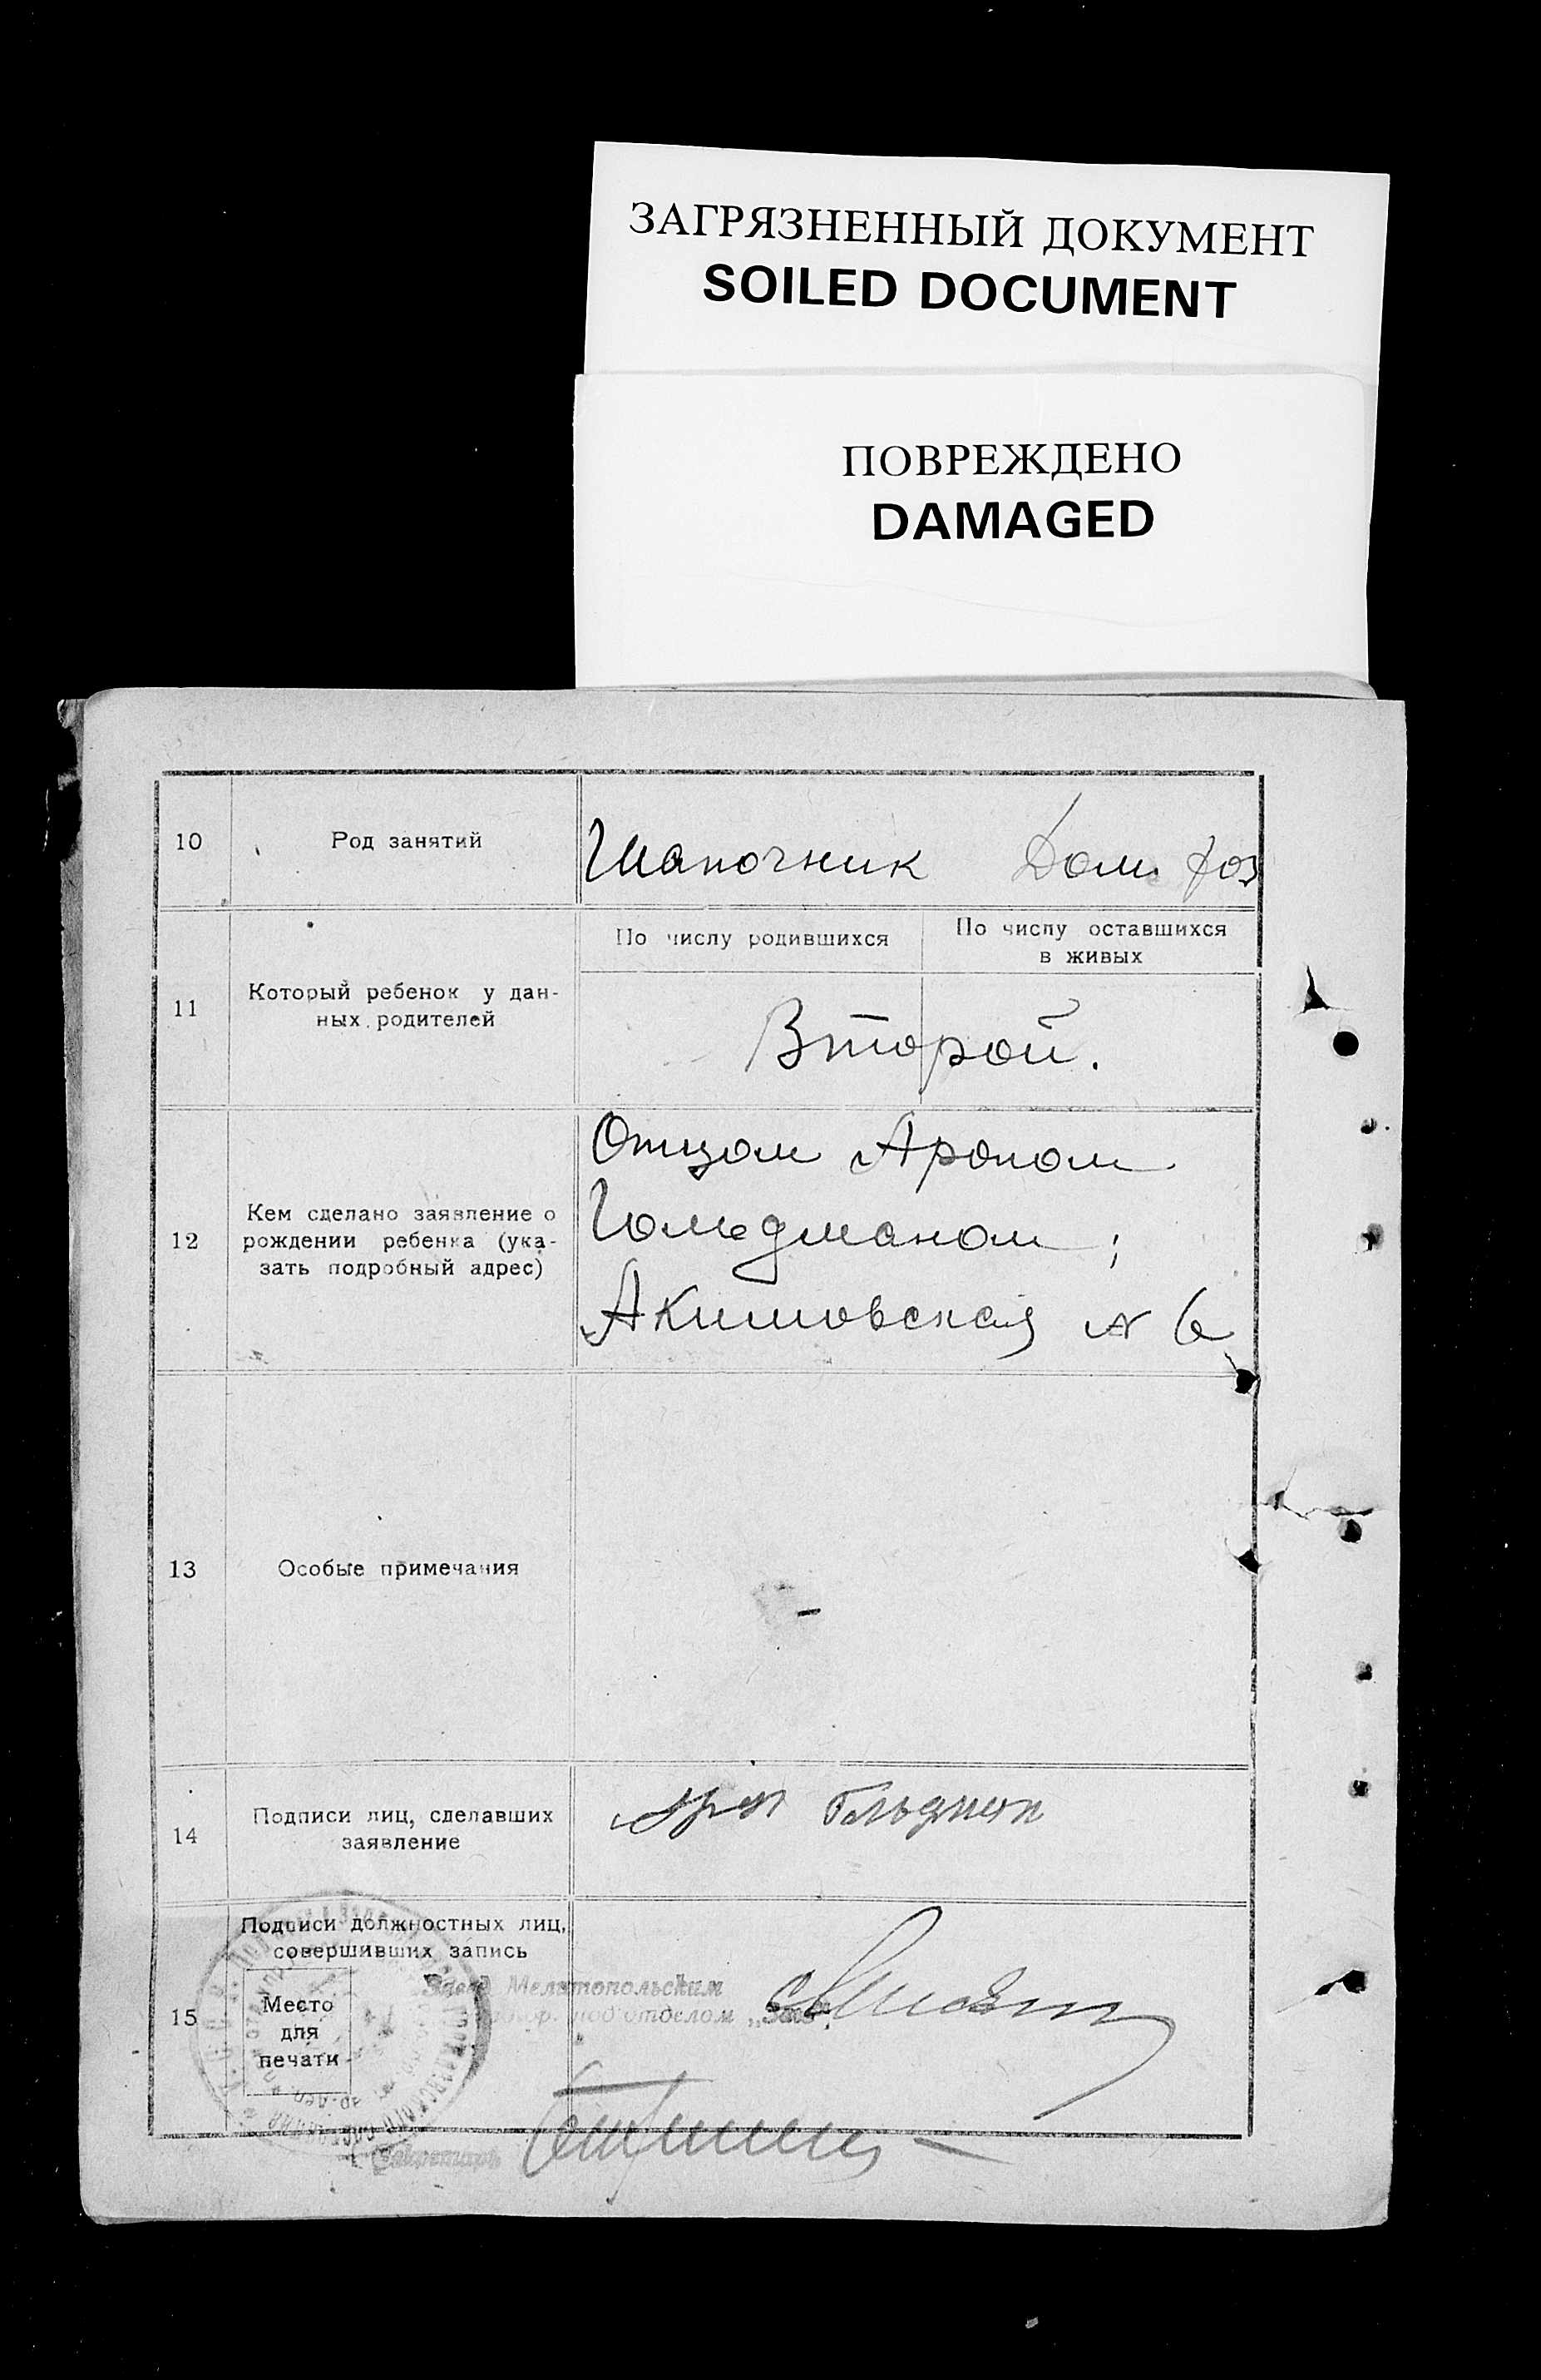 ЗАГРЯЗНЕННЫЙ ДОКУМЕНТ
SOILED DOCUMENT
ПОВРЕЖДЕНО
DAMAGED
10
Род занятий
Шапочник Дом. хоз
11
Который ребенок у дан-
ных родителей
По числу родившихся
По числу оставшихся
в живых
Второй.
12
Кем сделано заявление о
рождении ребенка (ука-
зать подробный адрес)
Отцом Ароном
Гольдманом;
Акимовская № 6
13
Особые примечания
-
14
Подписи лиц, сделавших
заявление
Арон Гольдман
15
Подписи должностных лиц,
совершивших запись
Место
для
печати
Завед Мелитопольским
под'отделом „Загс".
Секретарь